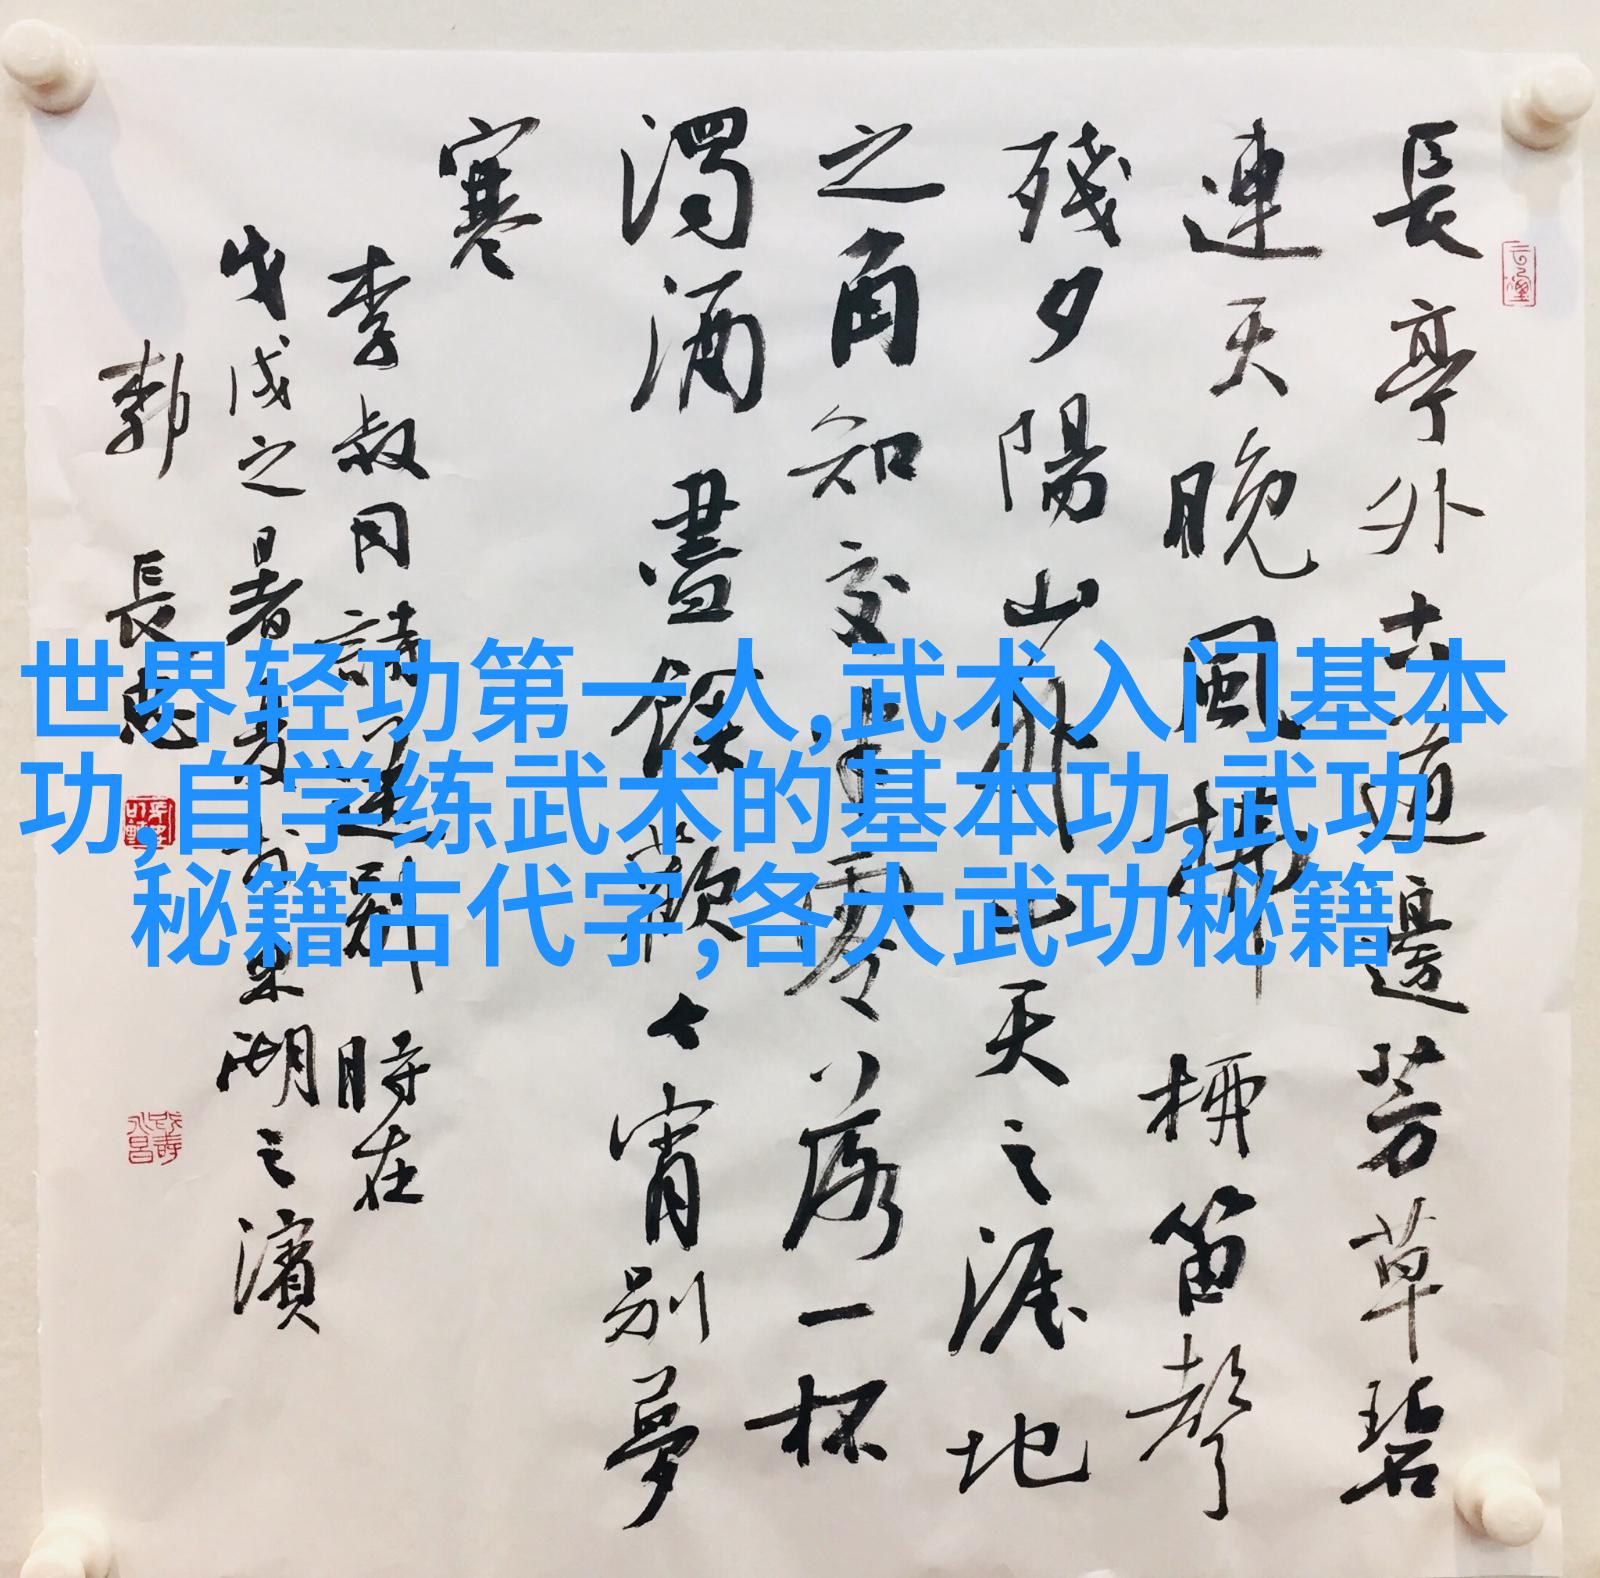 長亭外古道邊芳草碧
連天晚風拂柳笛聲
殘夕陽山外山天之涯地
之角知交半零落一杯
濁酒盡餘歡今宵別夢
寒
李叔同詩送別 時在
戊戌之暑夏東湖之濱
郭長忠
世界轻功第一人,武术入门基本
功,自学练武术的基本功,武功
秘籍古代字,各大武功秘籍